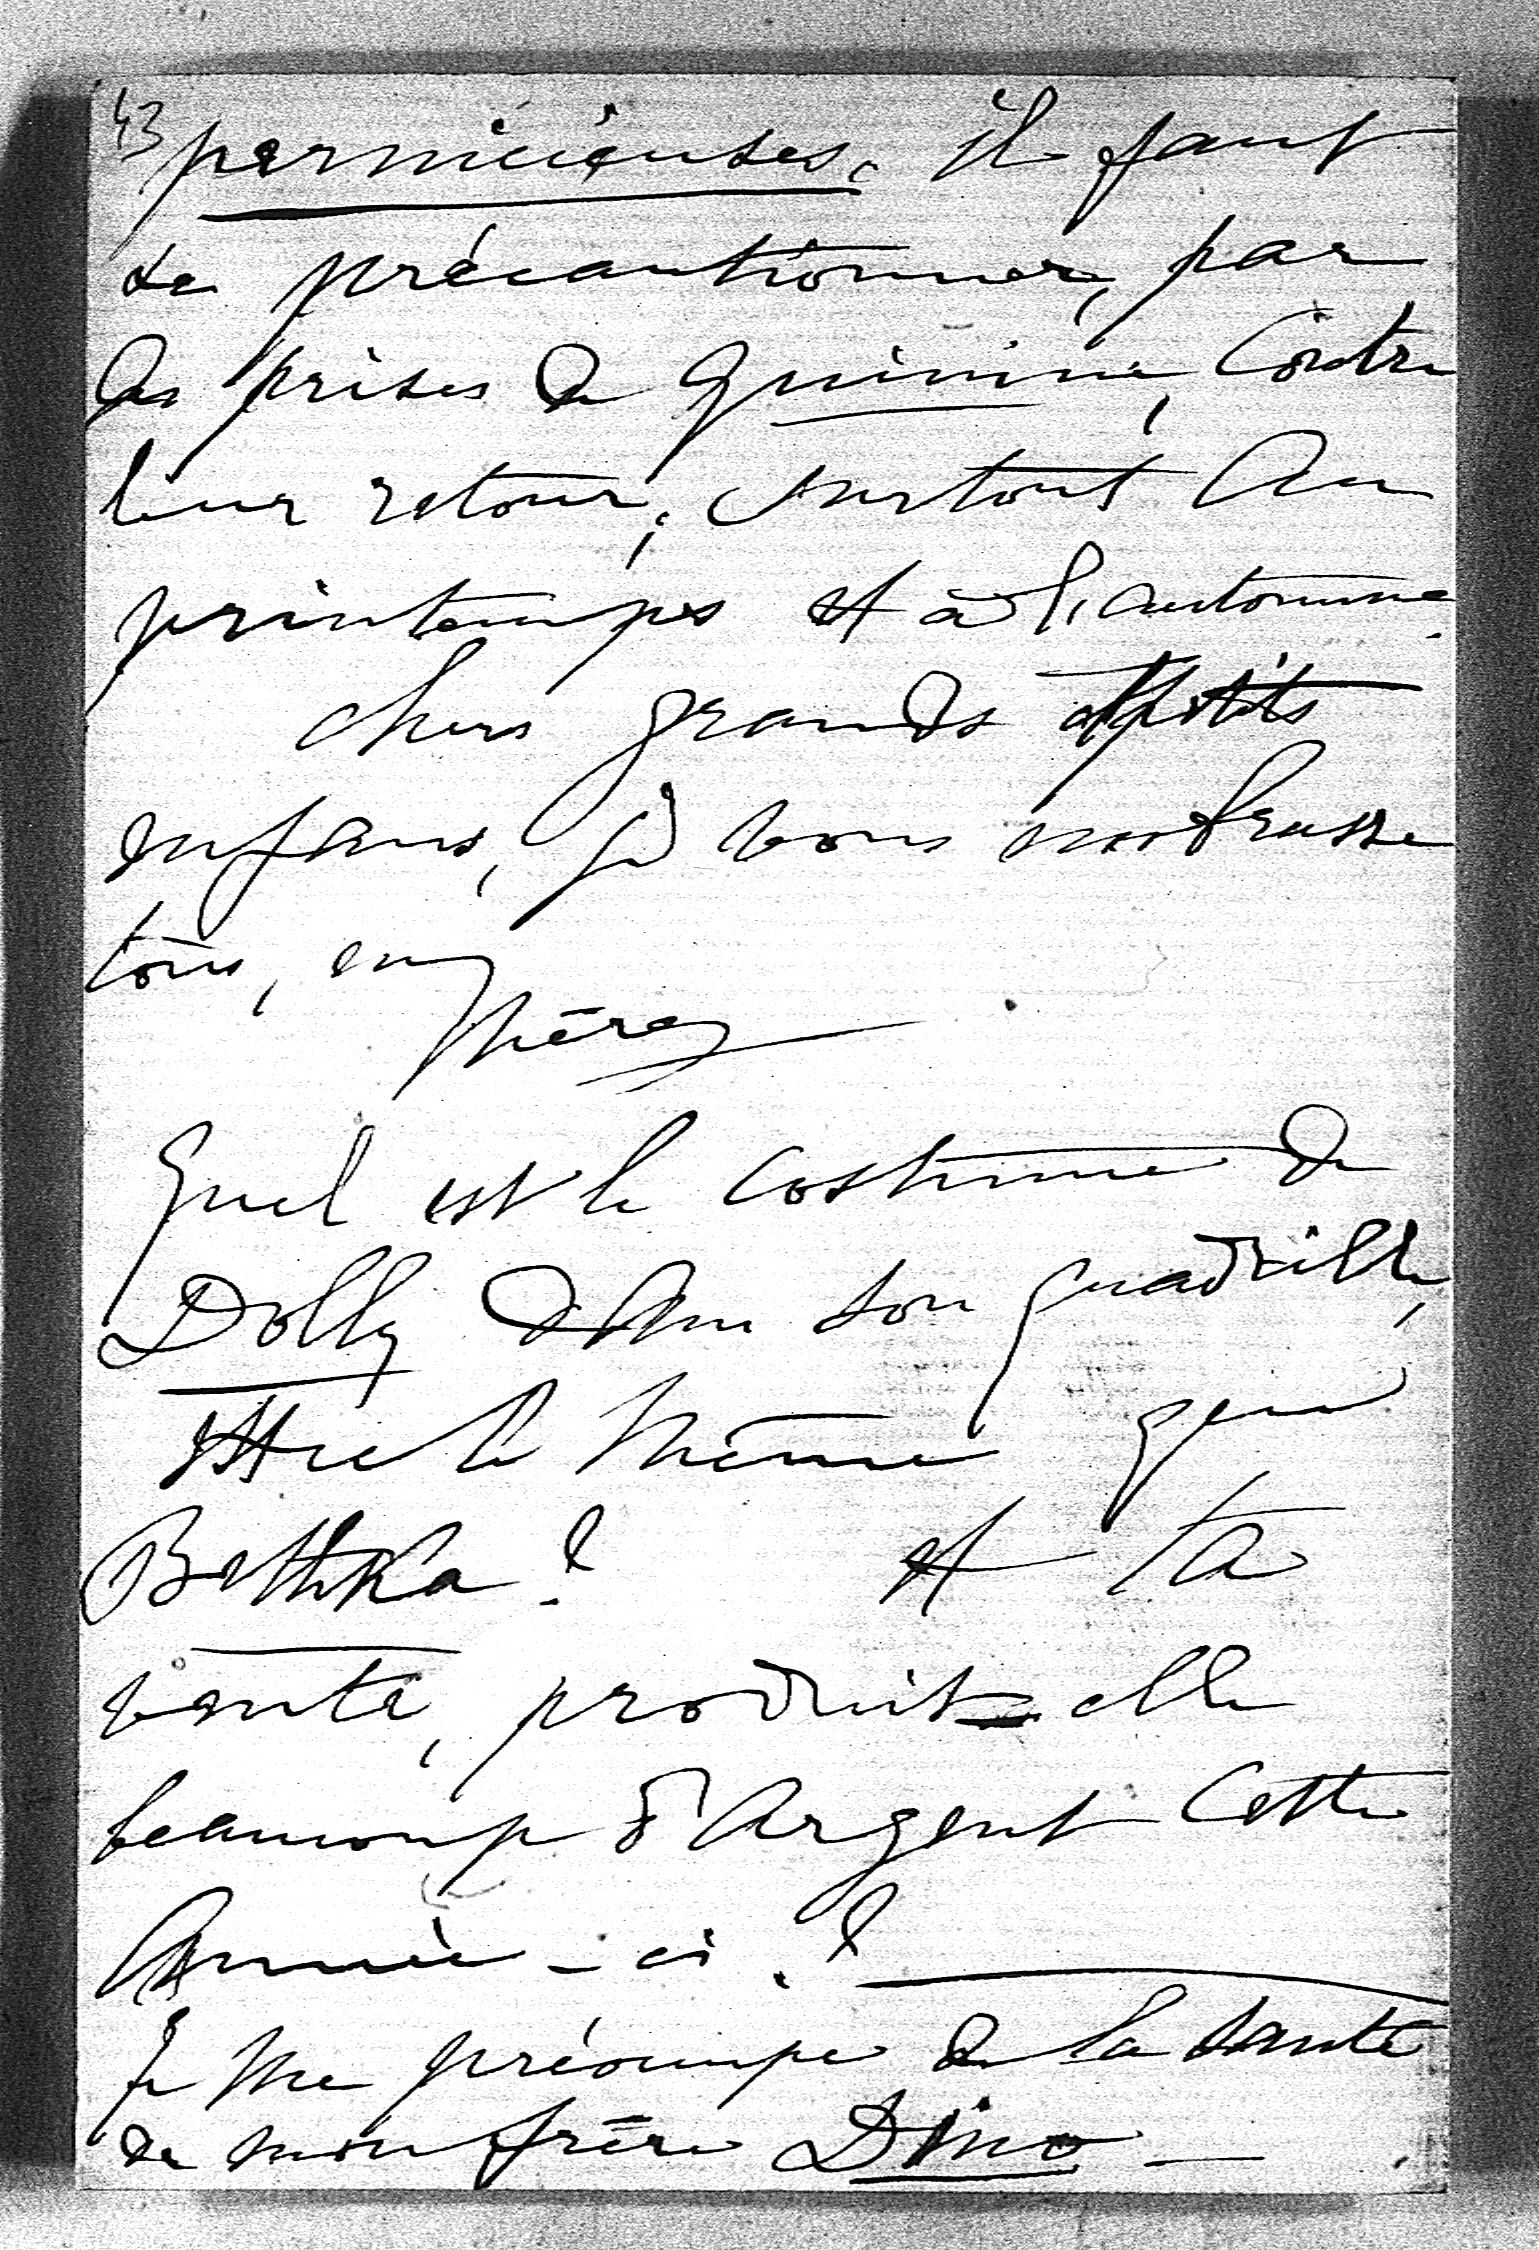 43
pernicieuses. il faut
se précautionner, par
des prises de quinine, contre
leur retour, surtout au
printemps et à l'automne.
chers grands et petits
enfans, je vous embrasse
tous, en
Mère
Quel est le costume de
Dolly dans son quadrille,
est ce le même que
Bethka ? et ta
vente, produit elle
beaucoup d'Argent cette
Année-ci ?
Je me préoccupe de la santé
de mon frère Dino -